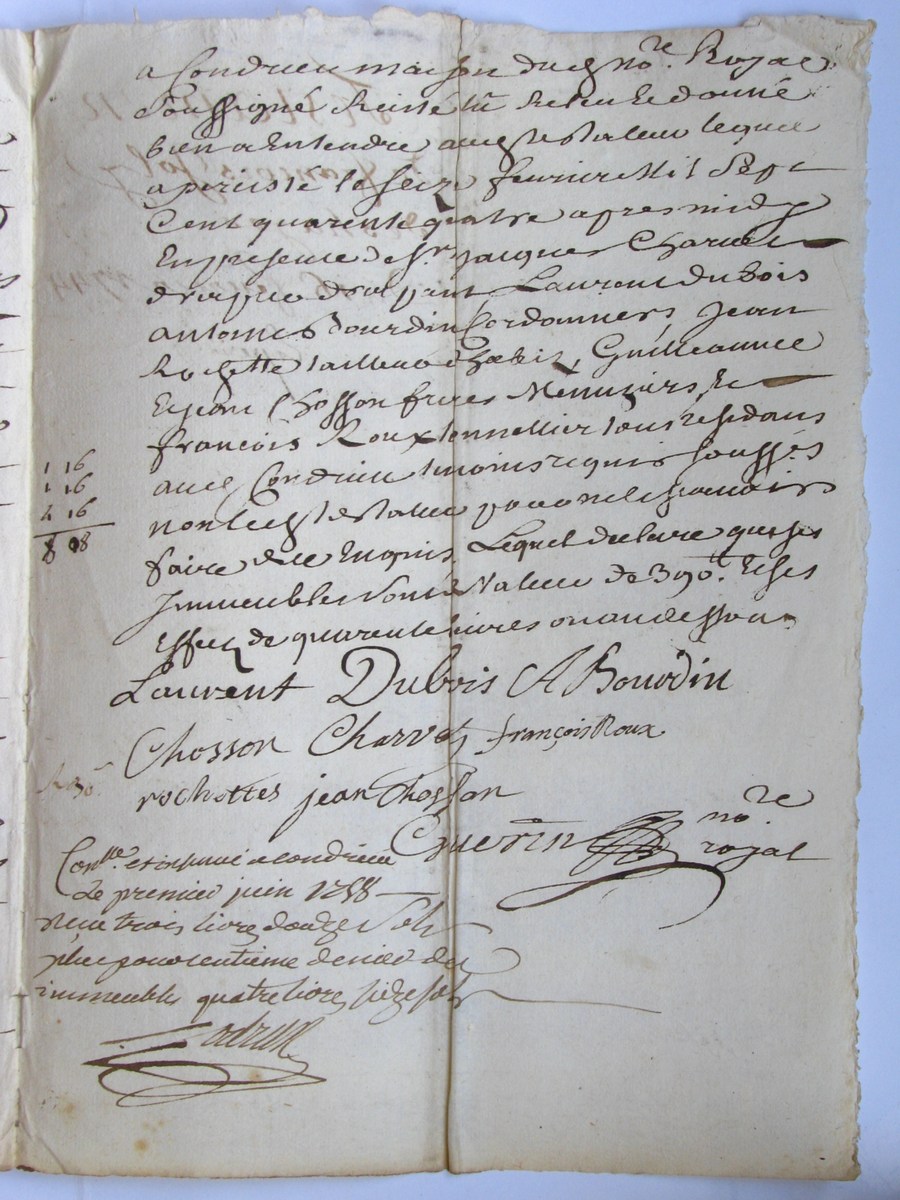 a Condrieu maison du no.re Royal
soussigné
bien a Entendre au testateur lequel
a persisté le seize feuvrier Mil Sept
Cent quarente quatre apres midy
En presence de Sr. Jacques Charvet
Laurent Dubois
antoine Bourdin Cordonniers, Jean
Rochette tailleur d'habit, Guilleaume
Et Jean Chosson freres Menuziers, Et
françois Roux tonnellier tous residans
aud Condrieu temoins requis soussés
non led testateur pour ne sçavoir
faire de ce Enquis Lequel declare que ses
Immeubles sont de Valleur de 390# Et ses
Effets de quarente livres ou au dessous
1 16
1 16
4 16
8 08
Laurent Dubois A Bourdin
Chosson Charvet françois Roux
rochettes jean Chosson
Guerin no.re
royal
Con.lle et insinué a condrieu
Le premier juin 1758
reçu trois livres douze sols
plus pour centieme denier des
immeubles quatre livres seize sols